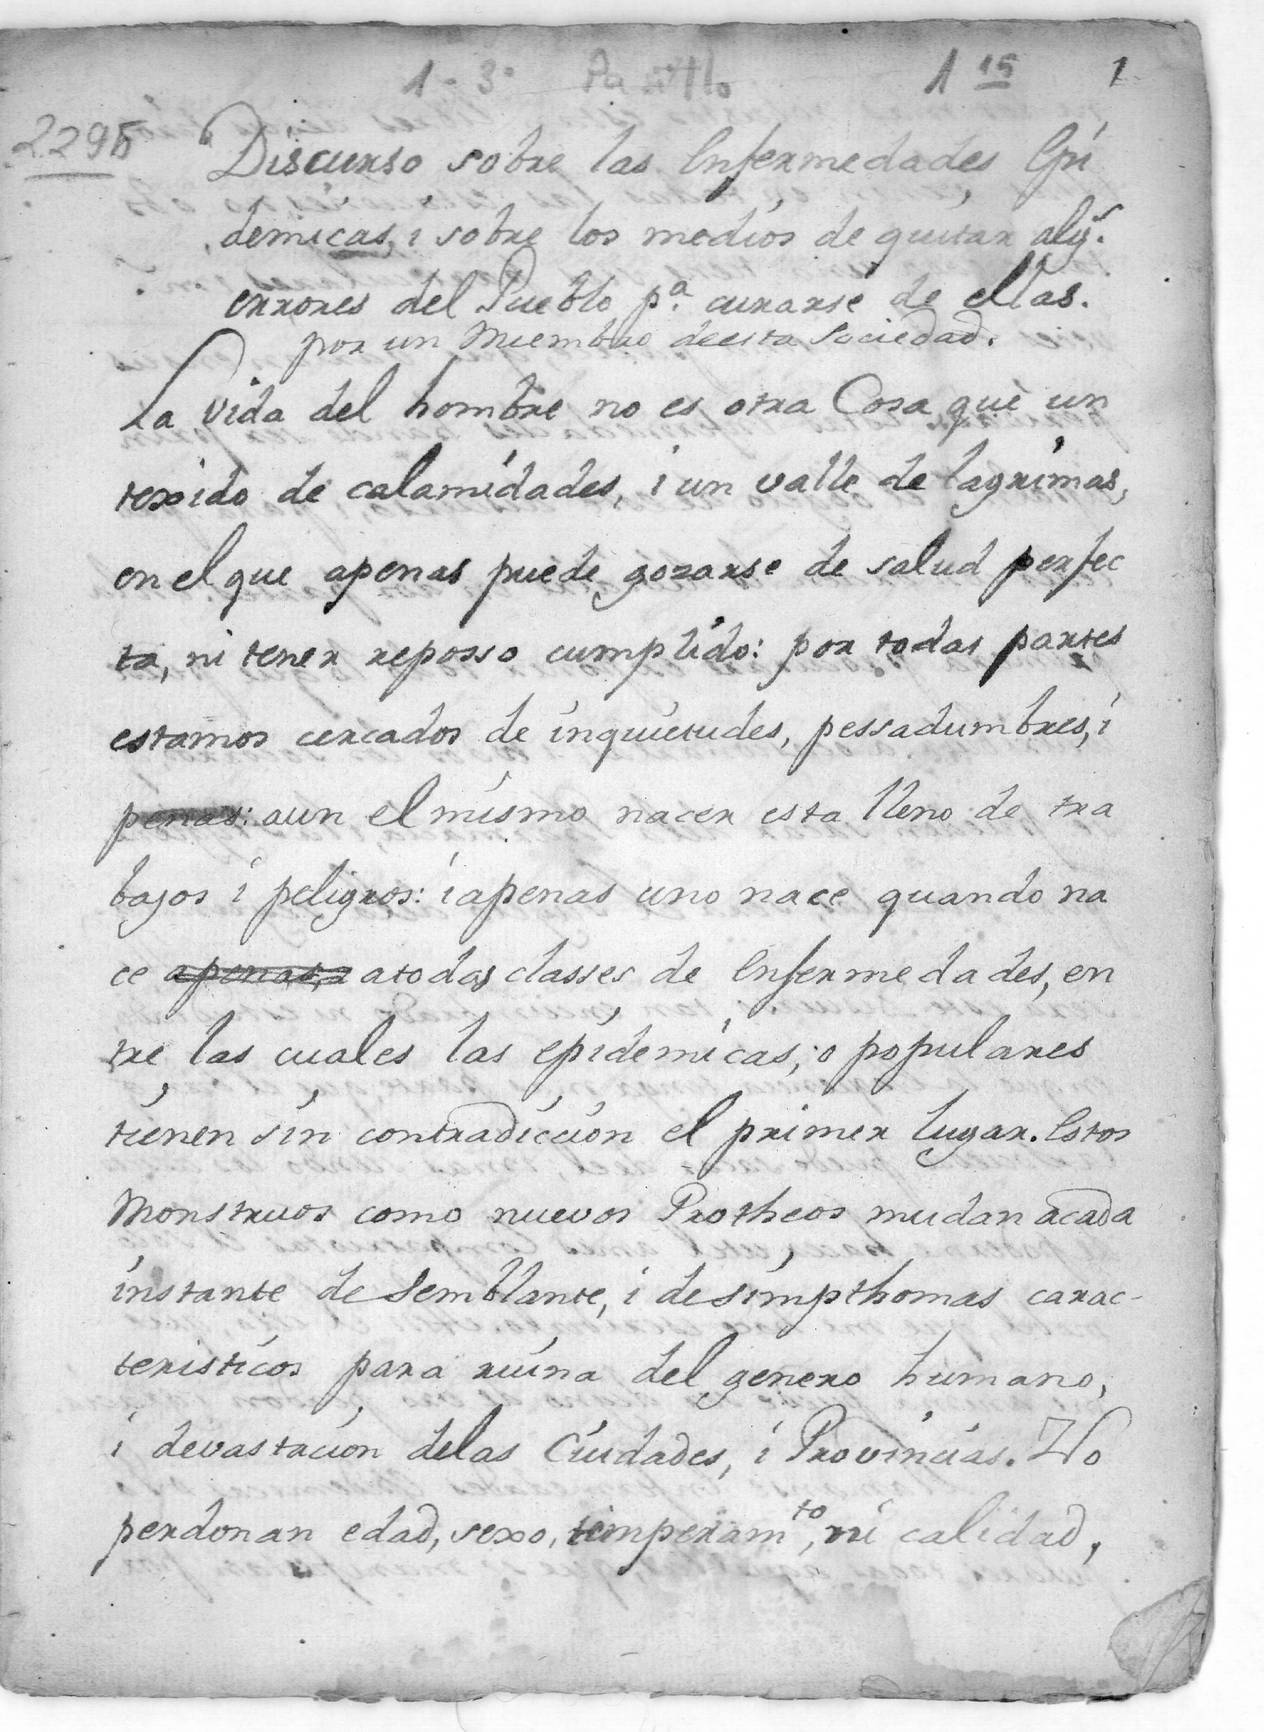 1-3°
1 15
1
2295
Discurso sobre las Enfermedades Epi
demicas, i sobre los medios de quitar algs.
errores del Pueblo pa. curarse de ellas.
por un Miembro deesta Sociedad.
La vida del hombre no es otra Cosa que un
texido de calamidades, i un valle de lagrimas,
en el que apenas puede gozarse de salud perfec
ta, ni tener reposso cumplido: por todas partes
estamos cercados de inquietudes, pessadumbres, i
penas: aun el mismo nacer esta lleno de tra
bajos i peligros: i apenas uno nace quando na
ce apenas, a atodas classes de Enfermedades, en
tre las cuales las epidemicas, o populares
tienen sin contradiccion el primer lugar. Estos
Monstruos como nuevos Protheos mudan acada
instante de Semblante, i de simpthomas carac-
teristicos para ruina del genero humano,
i devastacion delas Ciudades, i Provincias. No
perdonan edad, sexo, temperamto, ni calidad,